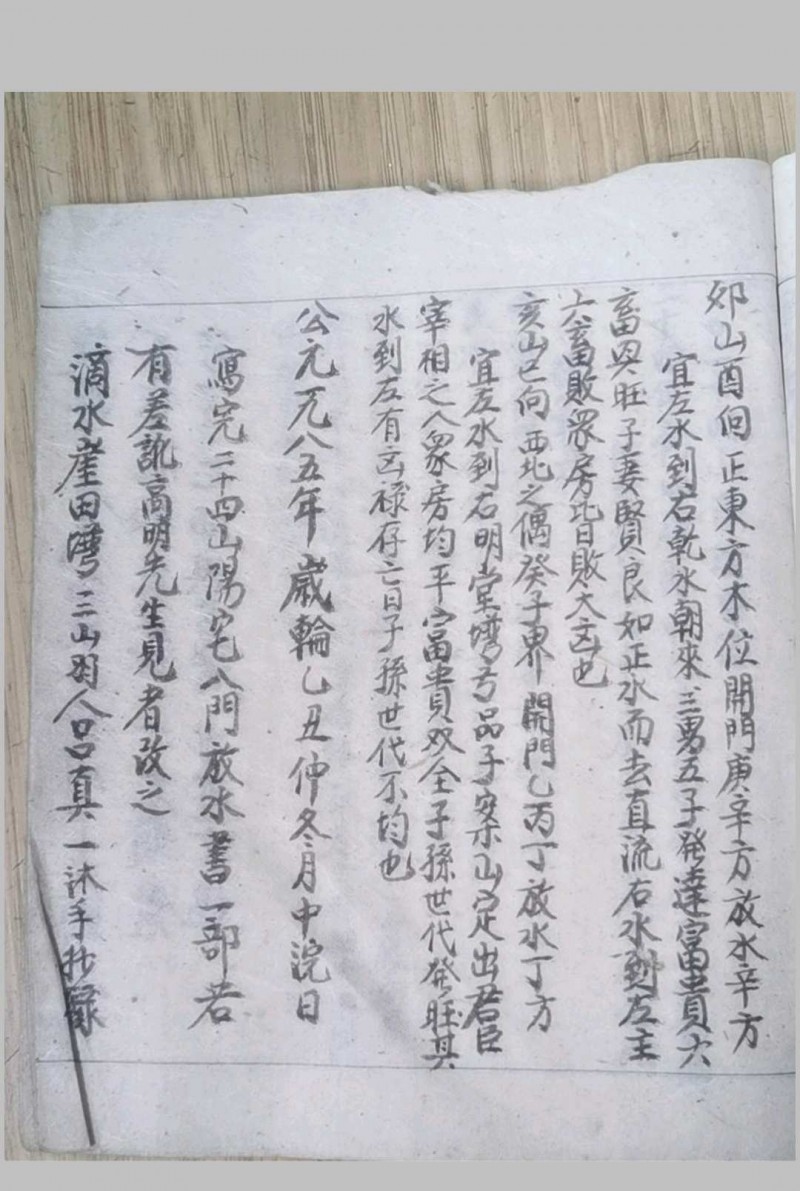 卯山酉向正東方木位開門庚辛方放水辛方
宜左水到右乾水朝來三男五子發達富貴六
畜興旺子妻賢良如正水而去直流右水到左主
六畜敗眾房皆敗大凶也
亥山巳向西北之偶癸子界開門乙丙丁放水丁方
宜左水到右明堂灣弓品子案山定出君臣
宰相之人眾房均平富貴双全子孫世代發旺其
水到左有凶祿存亡日子孫世代不均也
公元一九八五年歲輪乙丑仲冬月中浣日
寫完二十四山陽宅八門放水書一部若
有差訛高明先生見者改之
滴水崖田灣三山羽人呂真一沐手抄錄